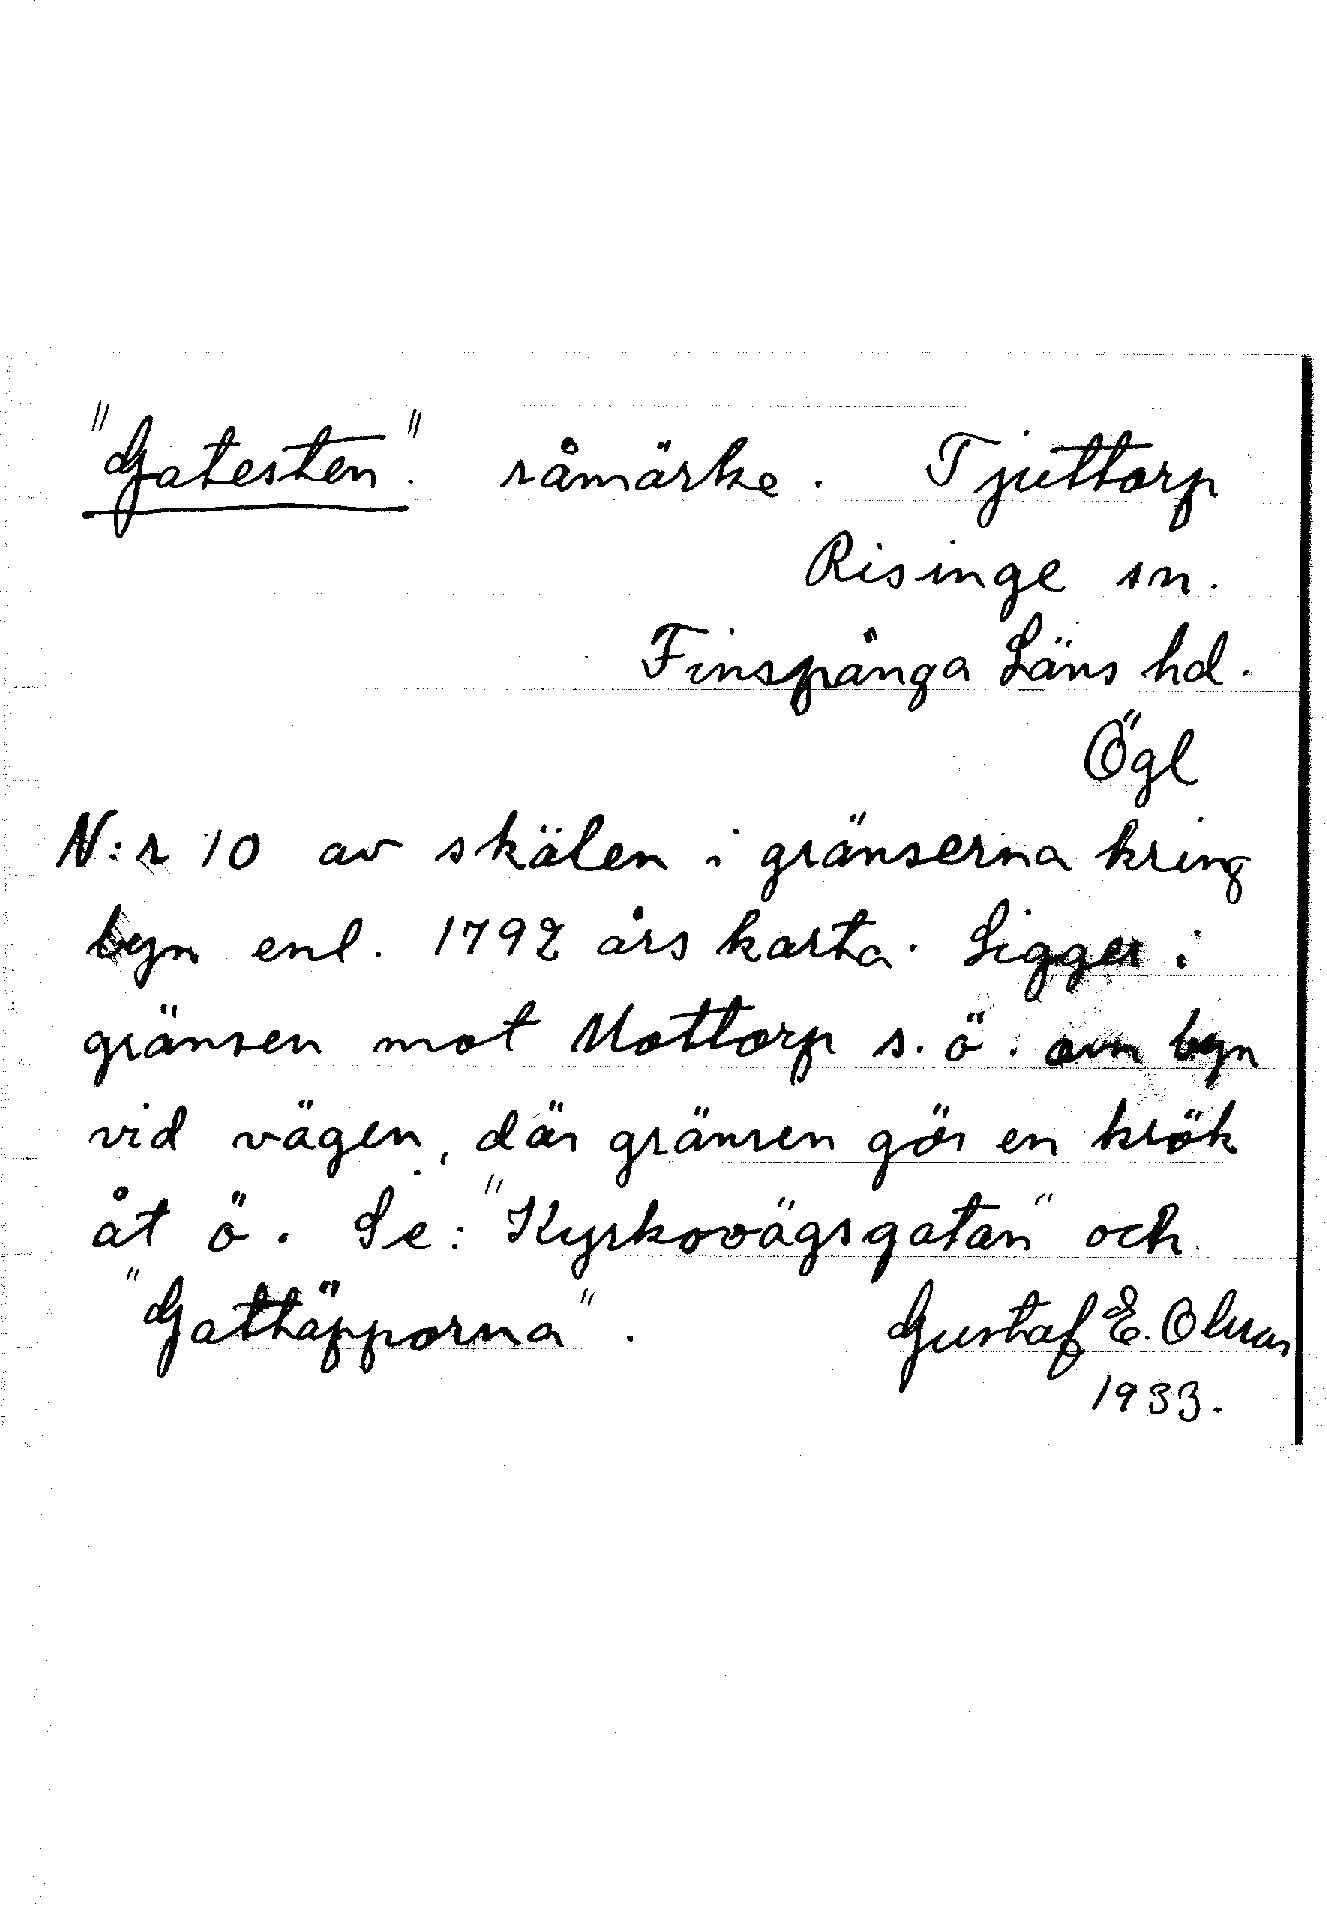 "Gatesten". råmärke. Tjuttorp
Risinge sn.
Finspånga Läns hd.
Ögl
N:r 10 av skälen i gränserna kring
byn enl. 1792 års karta. Ligger i
gränsen mot Mottorp s. ö. om byn
vid vägen, där gränsen gör en krök
åt ö. Se: "Kyrkovägsgatan" och
"Gattäpporna". Gustaf E. Olsson
1933.